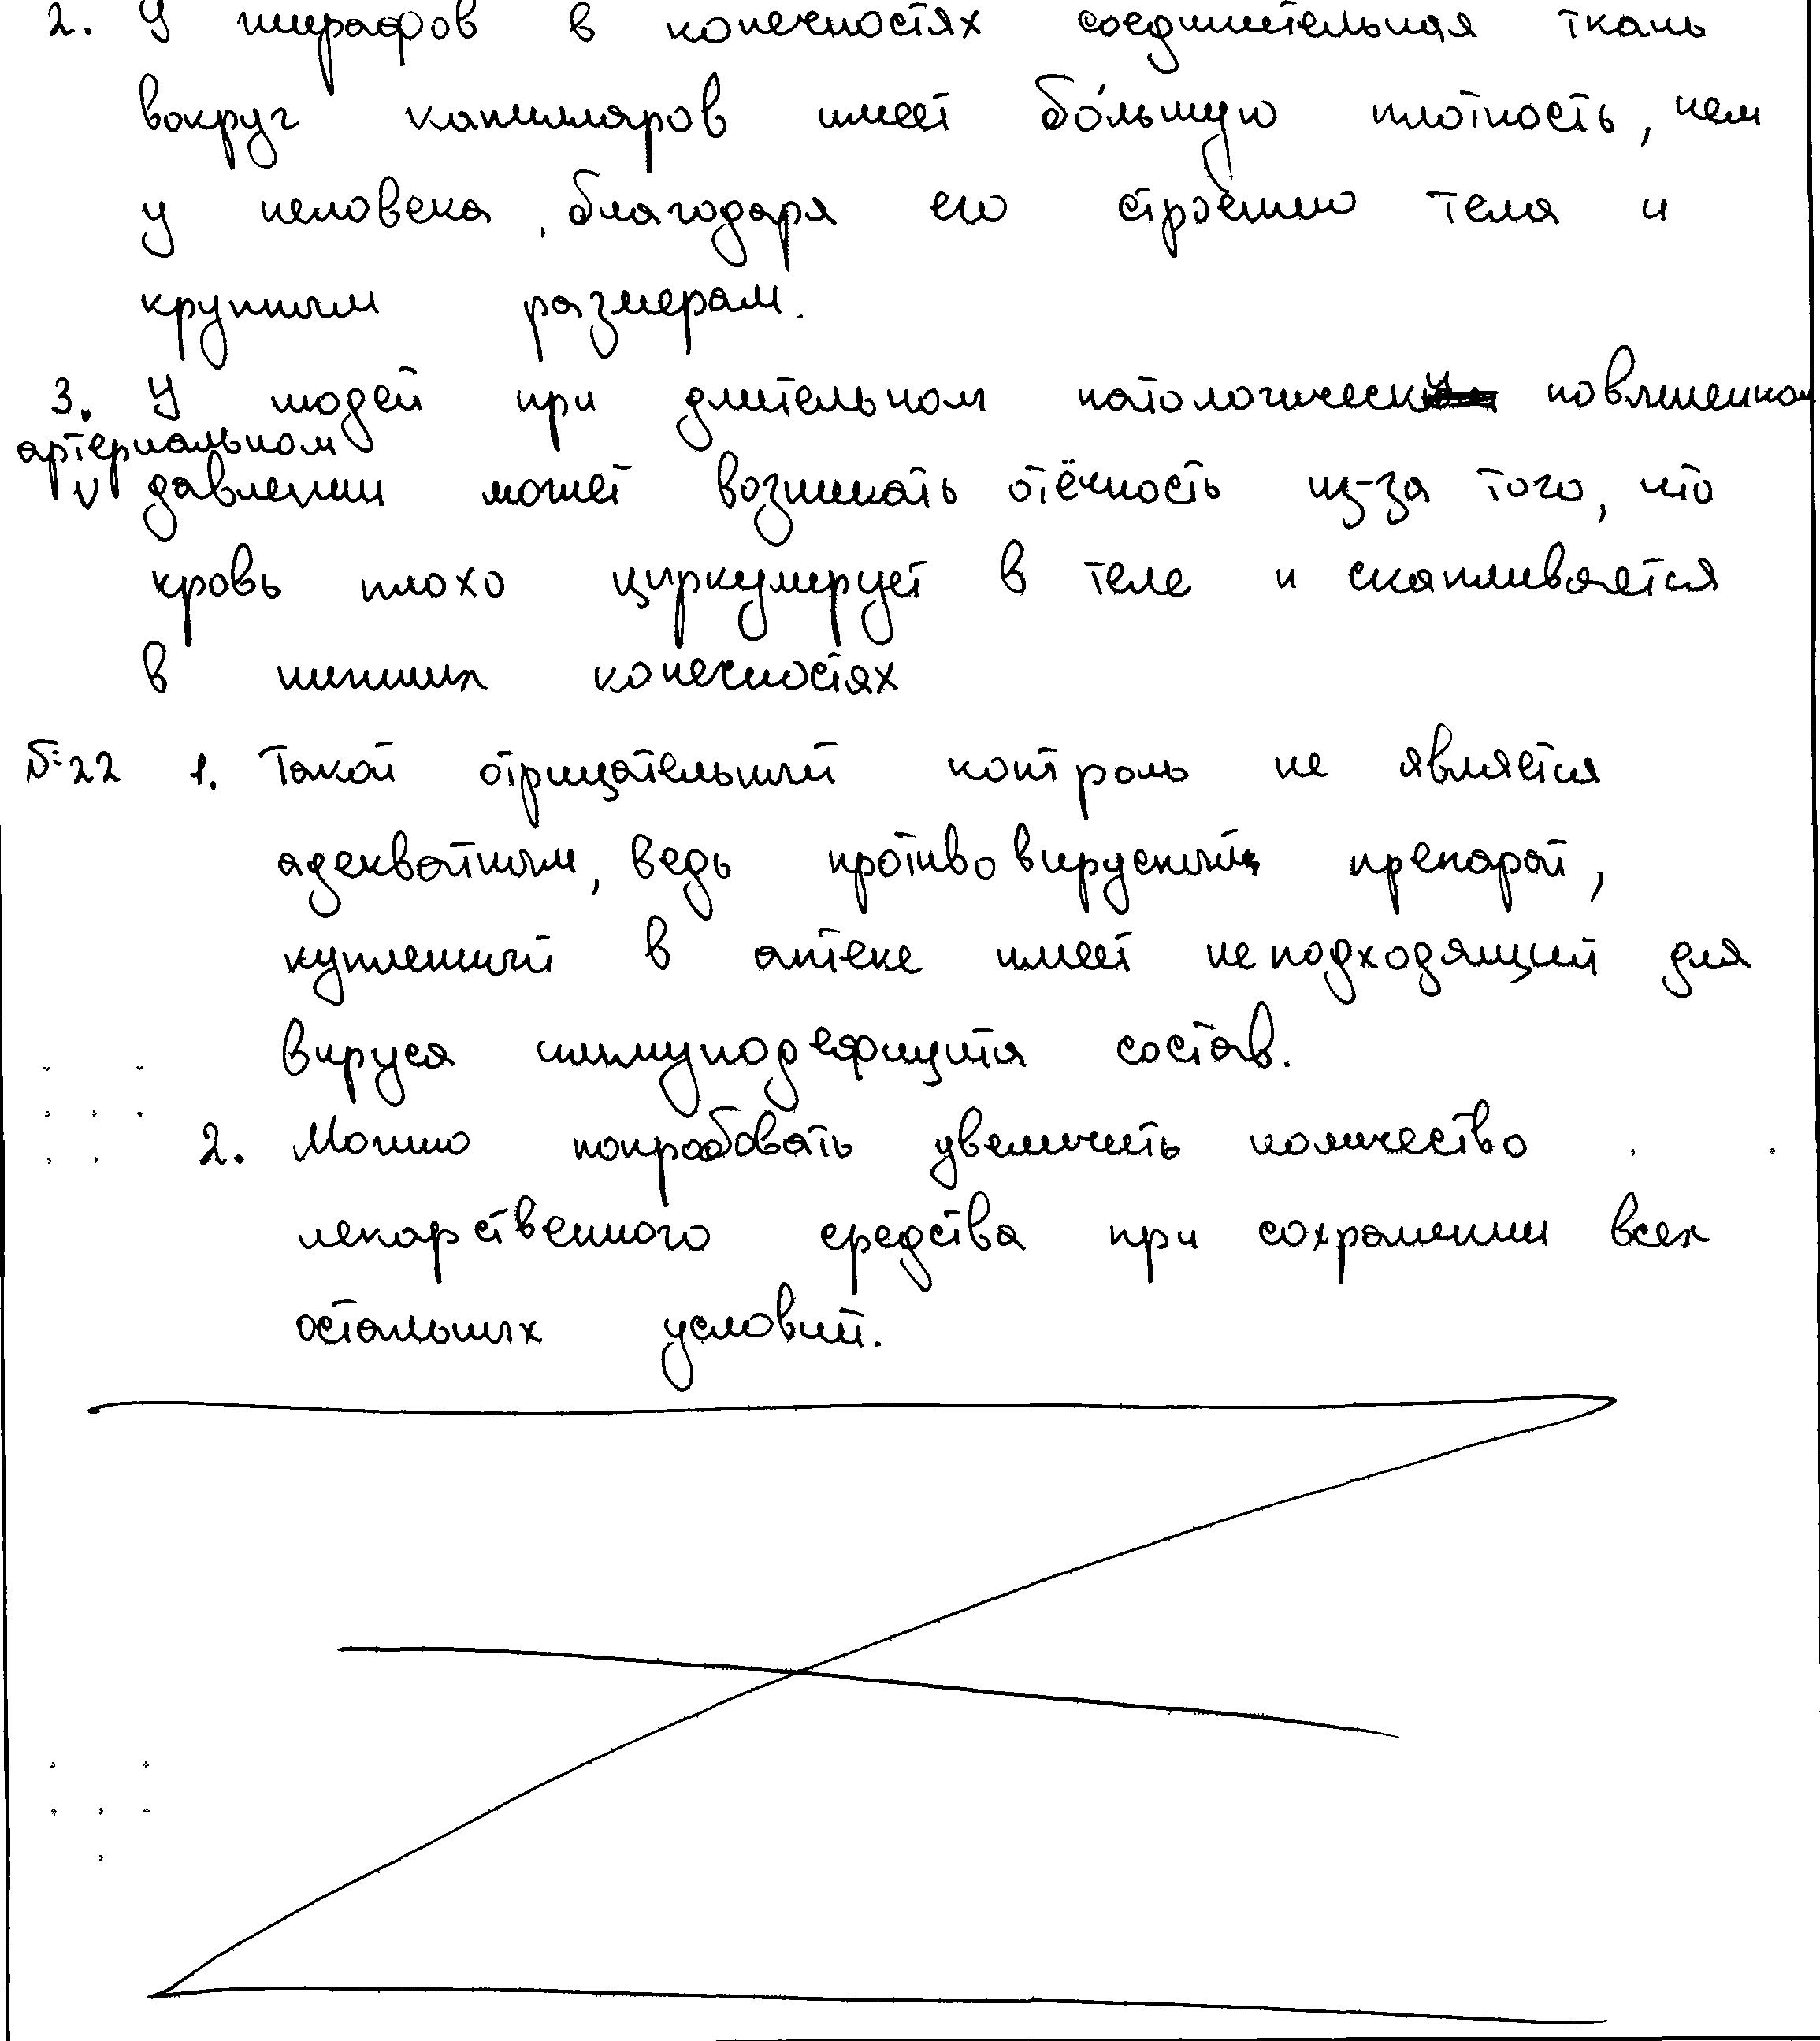 2. У жирафов в конечностях соединительная ткань
вокруг капилляров имеет бо́льшую плотность, чем
у человека, благодаря его строению тела и
крупным размерам.
3. У людей при длительном патологическ повышенном
артериальном
давлении может возникать отёчность из-за того, что
кровь плохо циркулирует в теле и скапливается
в нижних конечностях
№22 1. Такой отрицательный контроль не является
адекватным, ведь противовирусный препарат,
купленный в аптеке имеет неподходящий для
вируса иммунодефицита состав.
2. Можно попробовать увеличить количество
лекарственного средства при сохранении всех
остальных условий.